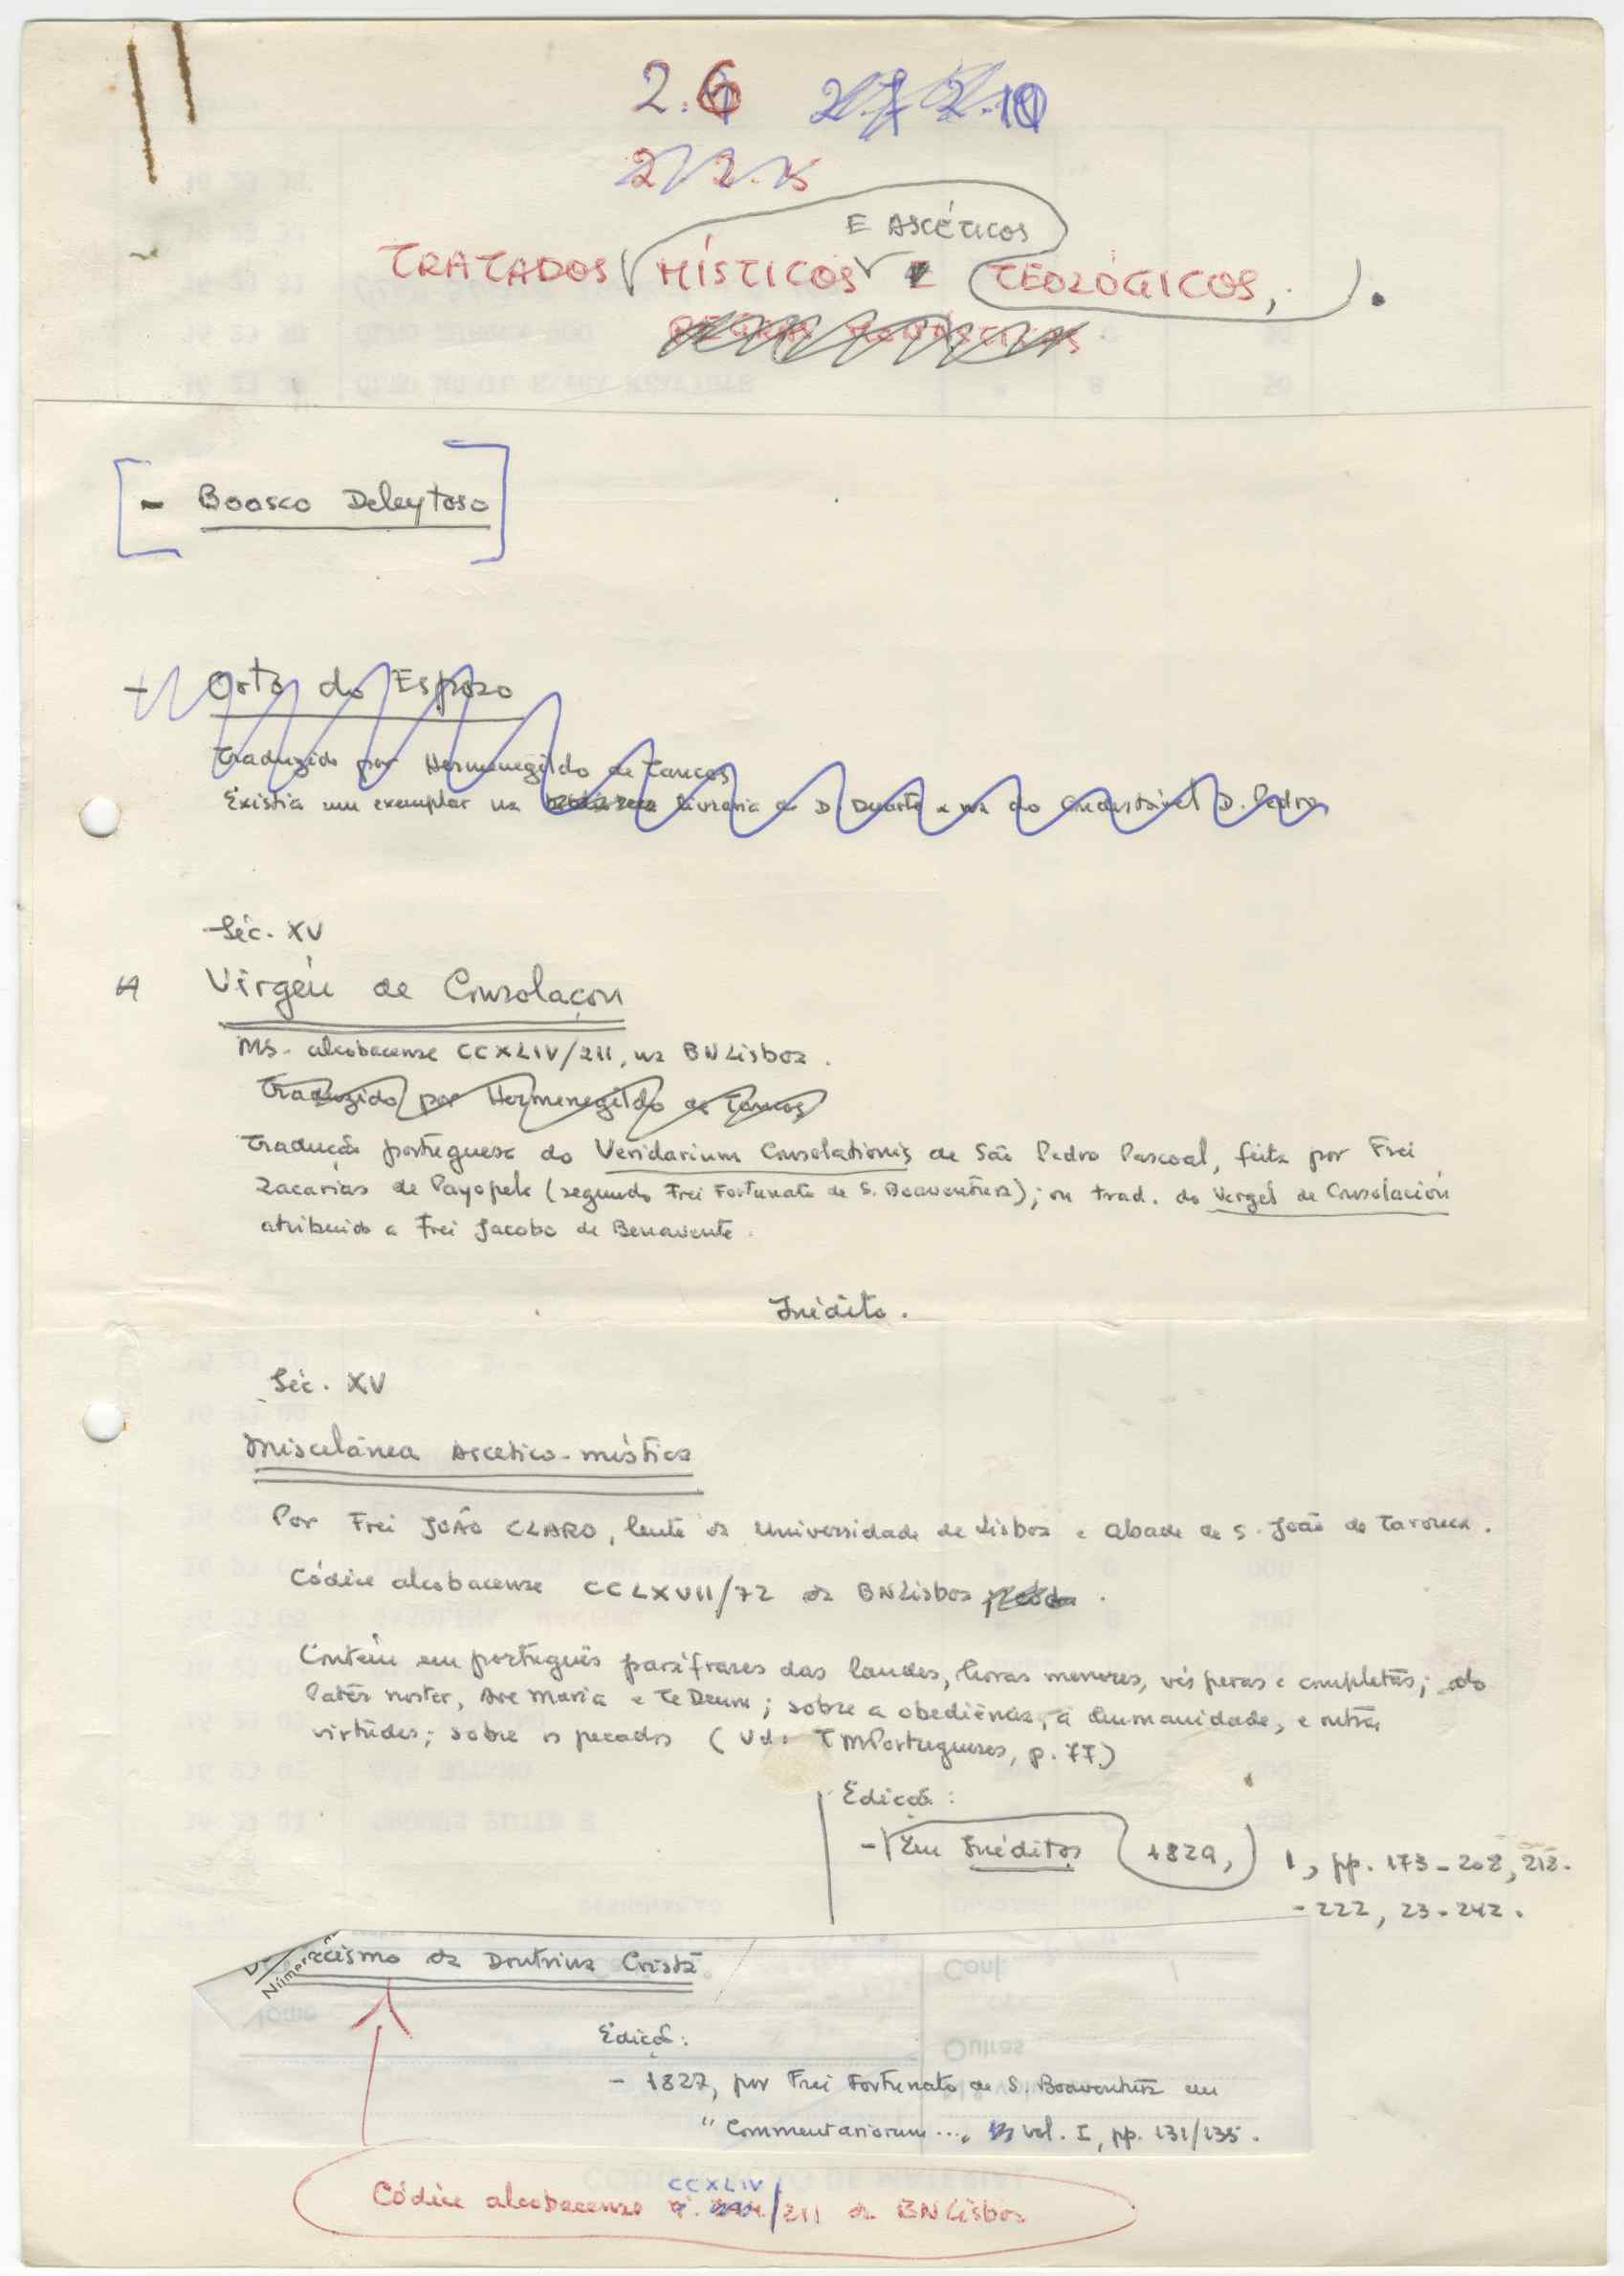 2.6 2.7 2.10
2.2.5
E ASCÉTICOS
TRATADOS MÍSTICOS E TEOLÓGICOS, .
REGRAS MONÁSTICAS
- Boosco Deleytoso
- Orto do Esposo
Traduzido por Hermenegildo de Tancos
Existia um exemplar na livraria de D. Duarte e na do Condestável D. Pedro
Séc. XV
Virgeu de Consolaçon
Ms. alcobacense CCXLIV/211, na BNLisboa.
Traduzido por Hermenegildo de Tancos
Tradução portuguesa do Veridarium Consolationis de São Pedro Pascoal, feita por Frei
Zacarias de Payopele (segundo Frei Fortunato de S. Boaventura); ou trad. do Vergel de Consolación
atribuido a Frei Jacobo de Benavente.
Inédito.
Séc. XV
Miscelânea Ascético-mística
Por Frei JOÃO CLARO, lente da Universidade de Lisboa e abade de S. João de Tarouca.
Códice alcobacense CCLXVII/72 da BNLisboa .
Contém em português paráfrases das laudes, horas menores, vésperas e completas; do
Pater noster, Ave Maria e Te Deum; sobre a obediência, a humanidade, e outras
virtudes; sobre os pecados (Vd. TMPortugueses, p. 77)
Edição:
- Em Inéditos (1829,) 1, pp. 173-208, 218-
- 222, 23-242.
Númer
ecismo da Doutrina Cristã
Nome
Cont.
Outras
Edição:
- 1827, por Frei Fortunato de S. Boaventura em
"Commentariorum ..., vol. I, pp. 131/135.
CCXLIV
Códice alcobacense /211 da BNLisboa